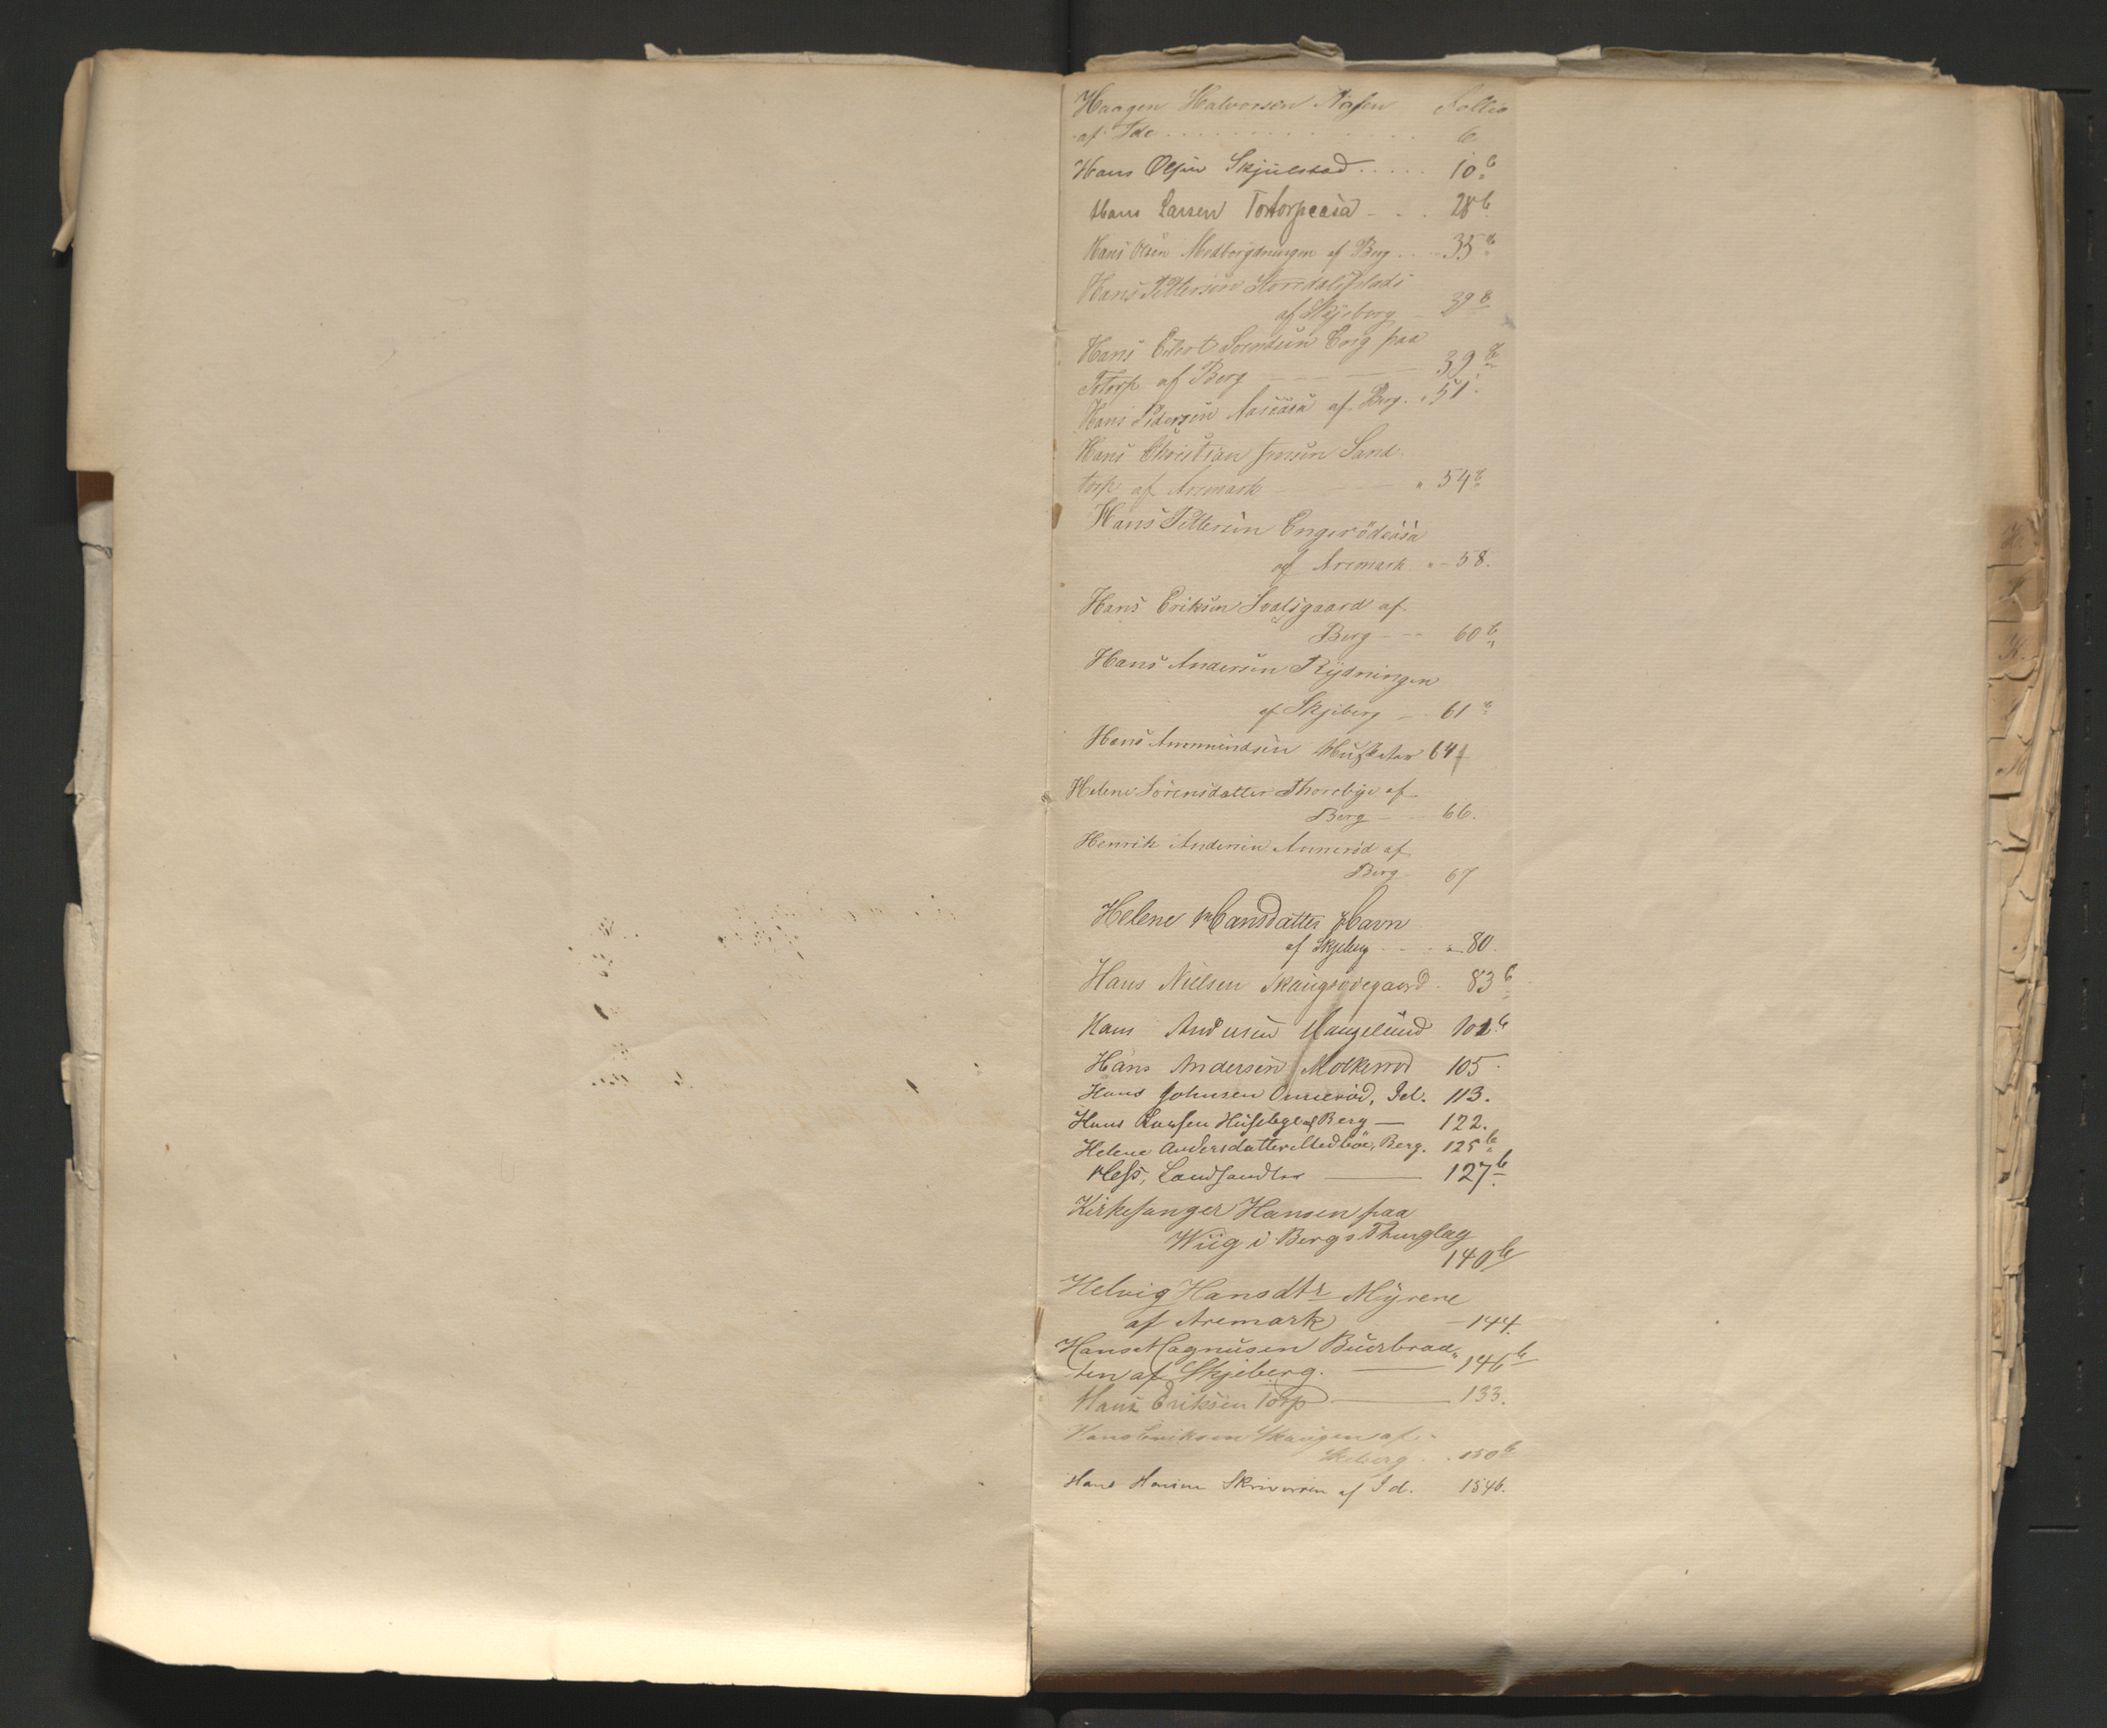 Haagen Halvorsen Folio
af Ide . . . . . . . . . 6
Hans Olsen Skjulstad . . . . . 10b
Hans Larsen Tortorpeaia - . . 28b
Hans Olsen af Berg . . . 35b
Hans Pettersen
af Skjeberg - 39b
Hans Svendsen Borg paa
af Berg - - - 39b
Hans Pedersen af Berg. " 51.
Hans Christian Jensen Sand-
torp af Aremark - - " 54b
Hans Pettersen Engerödeiäsa
af Aremark " - 58.
Hans Eriksen af
Berg - - - 60b
Hans Andersen Rÿdningen
af Skjeberg - 61b
Hans Ammundsen 64
Helene Sörensdatter Thorebye af
Berg - - 66.
Henrik Andersen af
Berg 67
Helene Hansdatter Havn
af Skjeberg . . . " 80.
Hans Nielsen Skaugsödegaard. 83b
Hans Andersen 101b
Hans Andersen 105.
Hans Johnsen Id. 113.
Hans Larsen Huseby af Berg — 122.
Helene Andersdatter Medböe, Berg. 125b
Hess, Landhandler — 127b
Kirkesanger Hansen paa
Wiig i Bergs Thinglag
140b
Helvig Hansdtr Mÿrene
af Aremark — 144.
Hans Magnusen Buerbraa-
ten af Skjeberg. — " 146b
Hans Eriksen Torp — 133.
Hans Eriksen Skaugen af
Skeberg . . 150b
Hans Hansen af Id. 154b.
H.
I.
K.
L
M